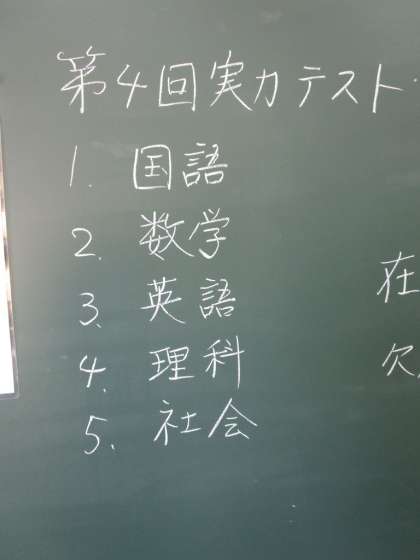 第4回実力テスト
1. 国語
2. 数学
3. 英語
4. 理科
5. 社会
在
欠